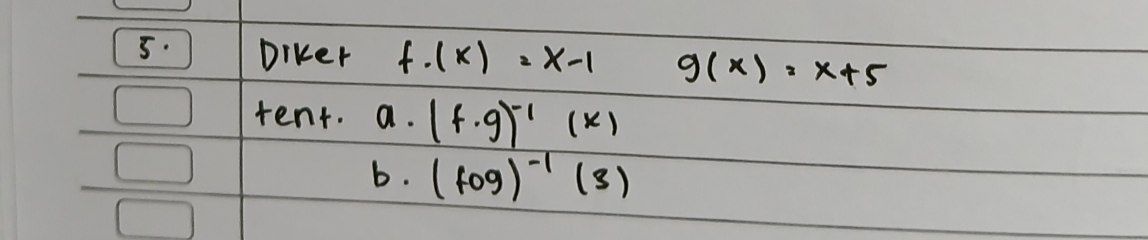 5. Diket f.(x) = x-1 g(x) = x+5
tent. a. (f.g)⁻¹ (x)
b. (fog)⁻¹ (3)